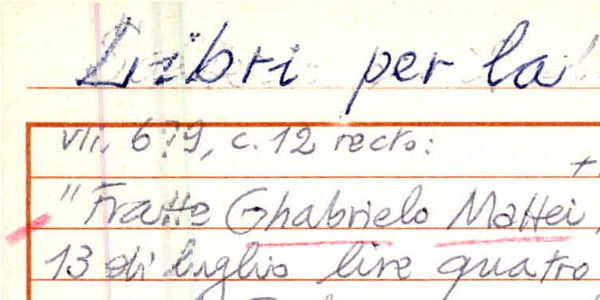 Libri per la
vti. 679, c. 12 recto:
"Fratte Ghabrielo Mattei,
13 di luglio lire quatro